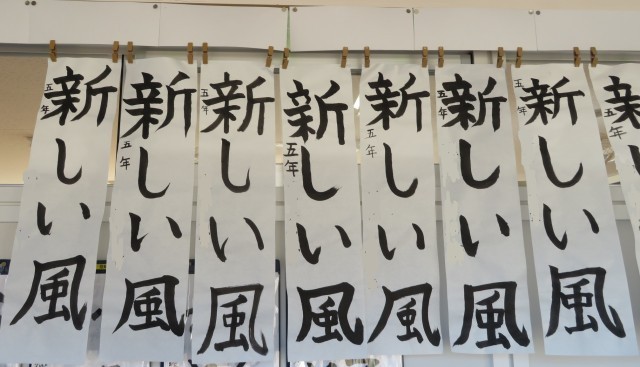 新しい風
五年
新しい風
五年
新しい風
五年
新しい風
五年
新しい風
五年
新しい風
五年
新しい風
五年
五年